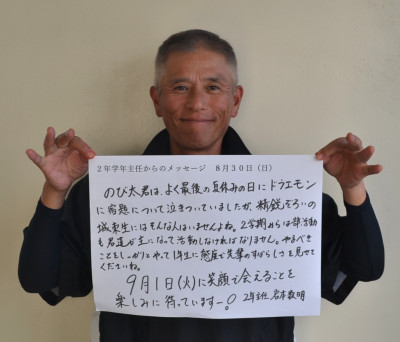 2年学年主任からのメッセージ 8月30日(日)
のび太君は、よく最後の夏休みの日にドラエモン
に宿題について泣きついていましたが、精鋭ぞろいの
城東生にはそんな人はいませんよね。2学期からは部活動
も君達が主になって活動しなければなりません。やるべき
ことをしっかりとやって1年生に態度で先輩のすばらしさを見せて
くださいね。
9月1日(火)に笑顔で会えることを
楽しみに待っていますー!
2年主任 岩本数明